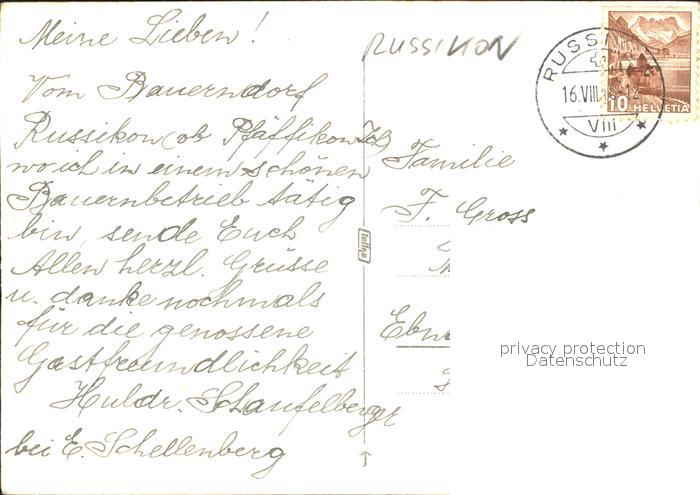 Meine Lieben!
Vom Bauerndorf
Russikon (ob Pfäffikon Zch)
wo ich in einem schönen
Bauernbetrieb tätig
bin, sende Euch
Allen herzl. Grüsse
u. danke nochmals
für die genossene
Gastfreundlichkeit
Huldr. Schaufelberger
bei E. Schellenberg
RUSSIKON
RUSSIKON
16.VIII.
VIII
10 HELVETIA
Familie
F. Gross
privacy protection
Datenschutz